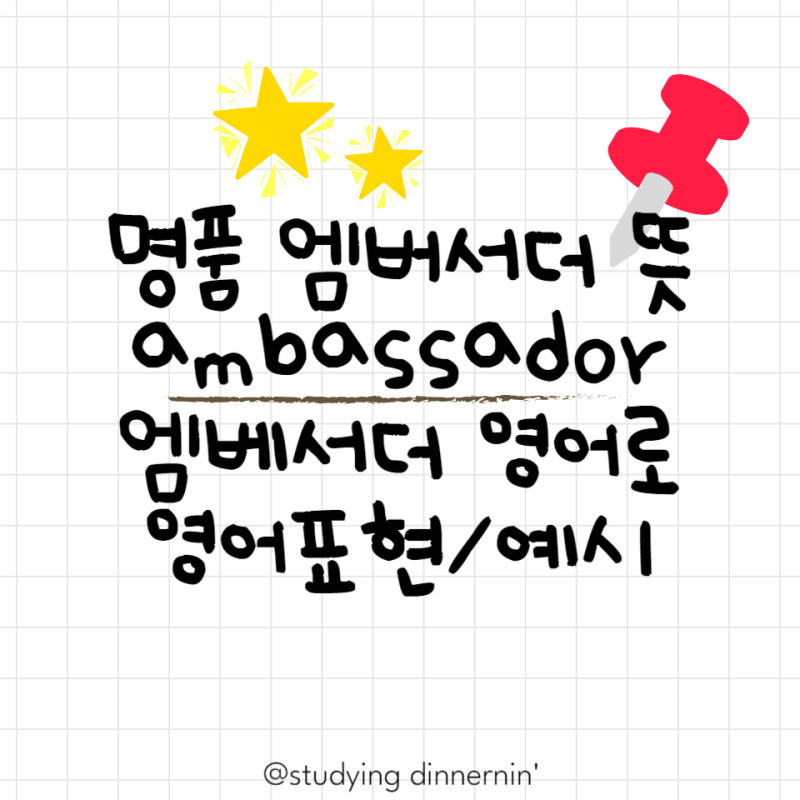 명품 엠버서더 뜻
ambassador
엠베서더 영어로
영어표현/예시
@studying dinnernin'